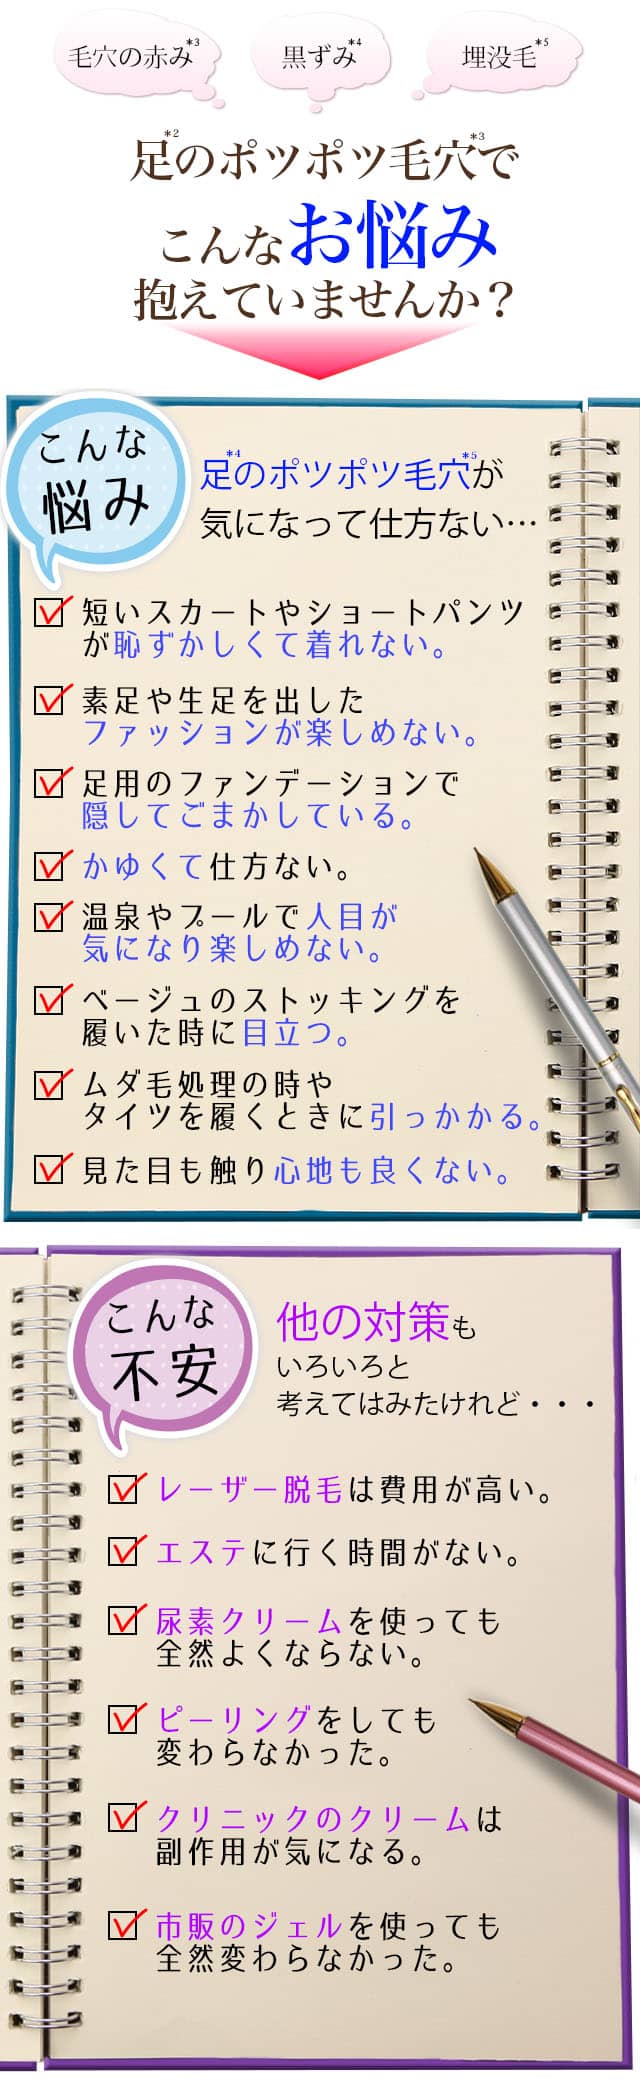 毛穴の赤み*3
黒ずみ*4
埋没毛*5
足*2のポツポツ毛穴*3で
こんなお悩み
抱えていませんか？
こんな
悩み
足*4のポツポツ毛穴*5が
気になって仕方ない…
短いスカートやショートパンツ
が恥ずかしくて着れない。
素足や生足を出した
ファッションが楽しめない。
足用のファンデーションで
隠してごまかしている。
かゆくて仕方ない。
温泉やプールで人目が
気になり楽しめない。
ベージュのストッキングを
履いた時に目立つ。
ムダ毛処理の時や
タイツを履くときに引っかかる。
見た目も触り心地も良くない。
こんな
不安
他の対策も
いろいろと
考えてはみたけれど・・・
レーザー脱毛は費用が高い。
エステに行く時間がない。
尿素クリームを使っても
全然よくならない。
ピーリングをしても
変わらなかった。
クリニックのクリームは
副作用が気になる。
市販のジェルを使っても
全然変わらなかった。